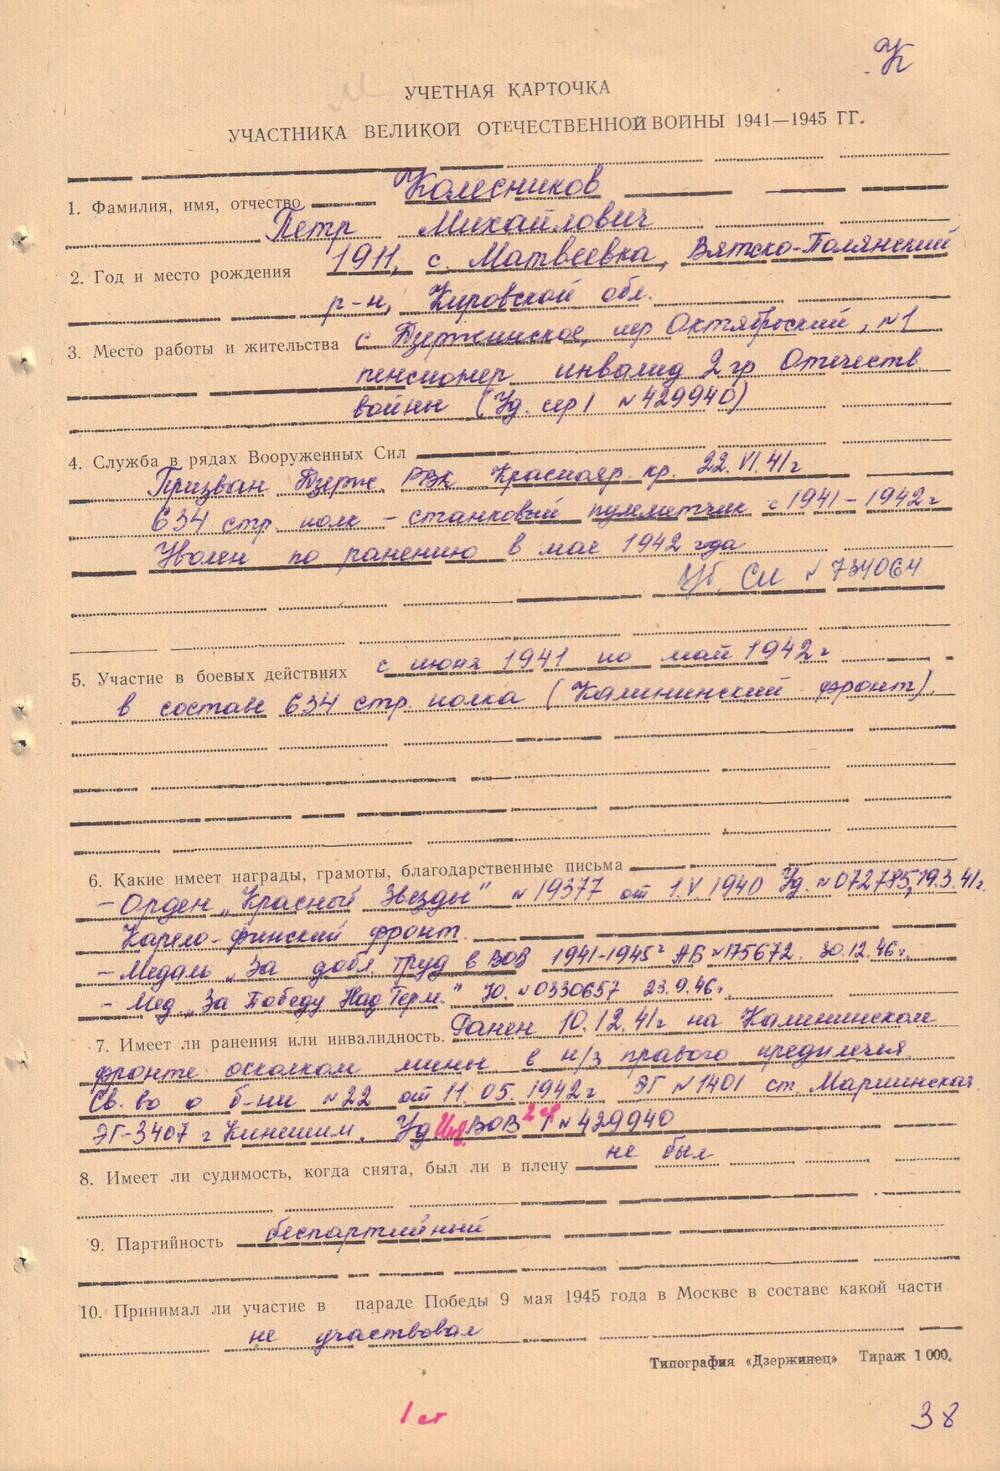 К
УЧЕТНАЯ КАРТОЧКА
УЧАСТНИКА ВЕЛИКОЙ ОТЕЧЕСТВЕННОЙ ВОЙНЫ 1941—1945 ГГ.
1. Фамилия, имя, отчество Колесников
Петр Михайлович
2. Год и место рождения 1911, с. Матвеевка, Вятско-Полянский
р-н, Кировской обл.
3. Место работы и жительства с Дзержинское, пер Октябрьский, №1
пенсионер инвалид 2 гр Отечеств
войны (Уд. сер 1 №429940)
4. Служба в рядах Вооруженных Сил
Призван Дзерж. РВК Краснояр. кр. 22.VI.41г
634 стр. полк – станковый пулеметчик с 1941-1942г
Уволен по ранению в мае 1942 года
Уб. СИ №734064
5. Участие в боевых действиях с июня 1941 по май 1942г
в составе 634 стр. полка (Калининский фронт).
6. Какие имеет награды, грамоты, благодарственные письма
– Орден „Красной Звезды" №19377 от 1.V.1940 Уд. №072785, 19.3.41г.
Карело-финский фронт.
– Медаль „За добл. труд в ВОВ 1941-1945г АБ №175672. 30.12.46г.
– Мед „За Победу Над Герм." Ю. №0330657 23.9.46г.
7. Имеет ли ранения или инвалидность. Ранен 10.12.41г на Калининском
фронте осколком мины в н/з правого предплечья.
Св. во о б-ни №22 от 11.05.1942г ЭГ №1401 ст. Мариинская.
ЭГ-3407 г Кинешим. Уд Инв. ВОВ 2 гр 1 №429940
8. Имеет ли судимость, когда снята, был ли в плену не был
9. Партийность беспартийный
10. Принимал ли участие в параде Победы 9 мая 1945 года в Москве в составе какой части
не участвовал
Типография «Дзержинец» Тираж 1 000.
1 ст
38